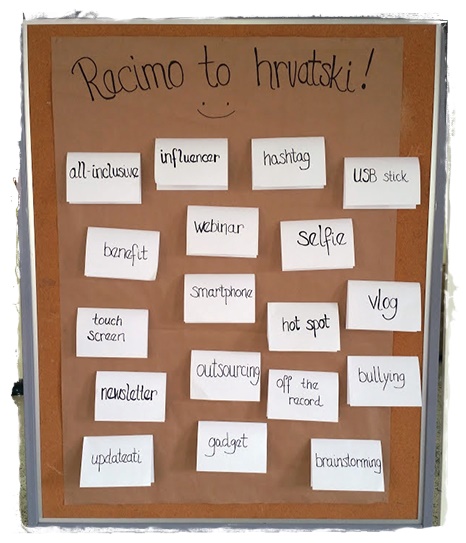 Recimo to hrvatski!
all-inclusive
influencer
hashtag
USB stick
benefit
webinar
selfie
smartphone
vlog
touch
screen
hot spot
newsletter
outsourcing
off the
record
bullying
updateati
gadget
brainstorming